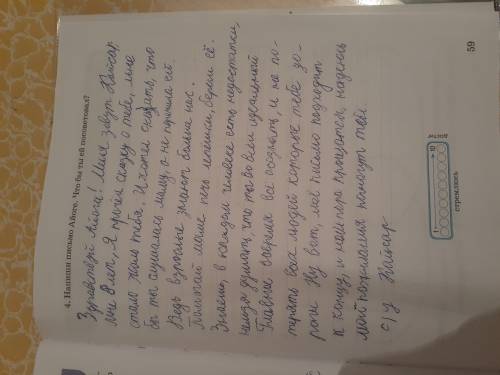 4. Напиши письмо Айоге. Что бы ты ей посоветовал?
Здравствуй Айога! Меня зовут Кайсар
мне 8 лет, Я прочёл сказку о тебе, мне
стало жаль тебя. И хотел сказать, что
бы ты слушалась маму, а не перечила ей.
Ведь взрослые знают больше нас.
маме печь лепёшки, береги её.
Знаешь, в каждом человеке есть недостатки,
нельзя думать, что ты во всём идеальный
Главное вовремя все осознать, и не по-
терять всех людей которые тебе до-
роги Ну вот, моё письмо подходит
к концу, и нам пора прощаться, надеюсь
мои пожелания помогут тебе.
с/у Кайсар
59
1
10
стремлюсь